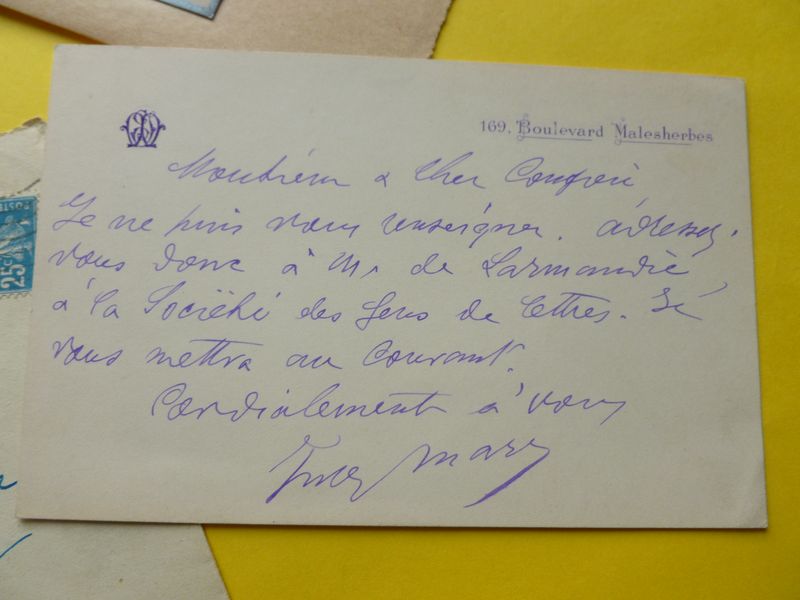 169. Boulevard Malesherbes
Monsieur & Cher Confrère
Je ne puis vous renseigner. adressez-
vous donc à Mr de Larmandie
à la Société des Gens de Lettres. Il
vous mettra au courant.
Cordialement à vous
Jules Mary
25c